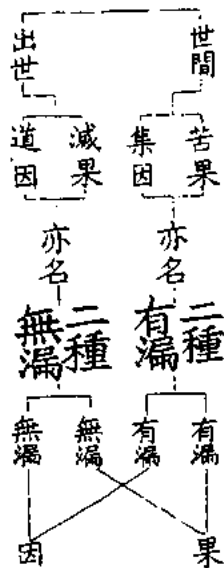 世間
出世
苦果
集因
滅果
道因
亦名
亦名
二種
有漏
二種
無漏
有漏
有漏
無漏
無漏
果
因